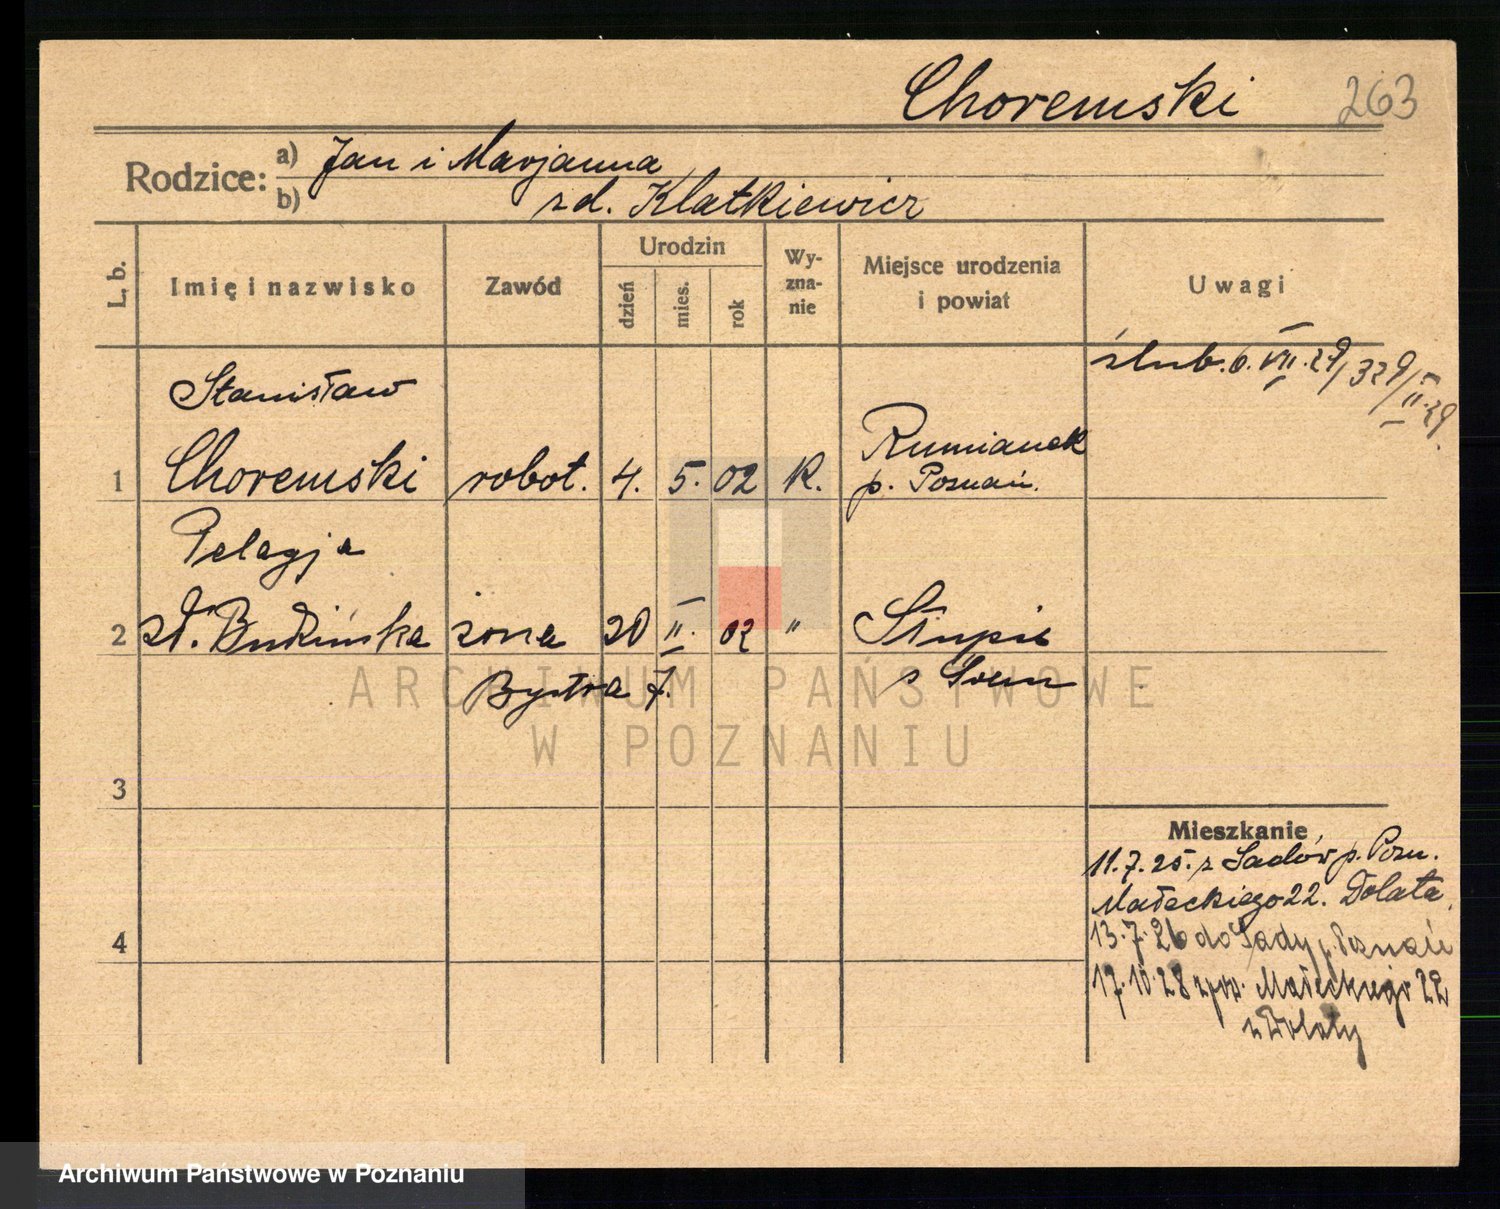 Choremski 263
Rodzice: a) Jan i Marjanna
b) zd. Klatkiewicz
L. b. Imię i nazwisko Zawód Urodzin dzień mies. rok Wy-zna-nie Miejsce urodzenia i powiat Uwagi
ślub. 6. VII. 29/329/II.29.
Stanisław
1 Choremski robot. 4. 5. 02 K. Rumianek
p. Poznań.
Pelagja
2 zd. Budzińska żona 20 II. 02 " Słupia
Bystra 7. p Śrem
ARCHIWUM PAŃSTWOWE
W POZNANIU
3
Mieszkanie
11.7.25. z Sadów p. Pozn.
Małeckiego 22. Dolata.
4 13.7.26 do Sady p. Poznań
17.10.28 Małeckiego 22
u Dolaty
Archiwum Państwowe w Poznaniu